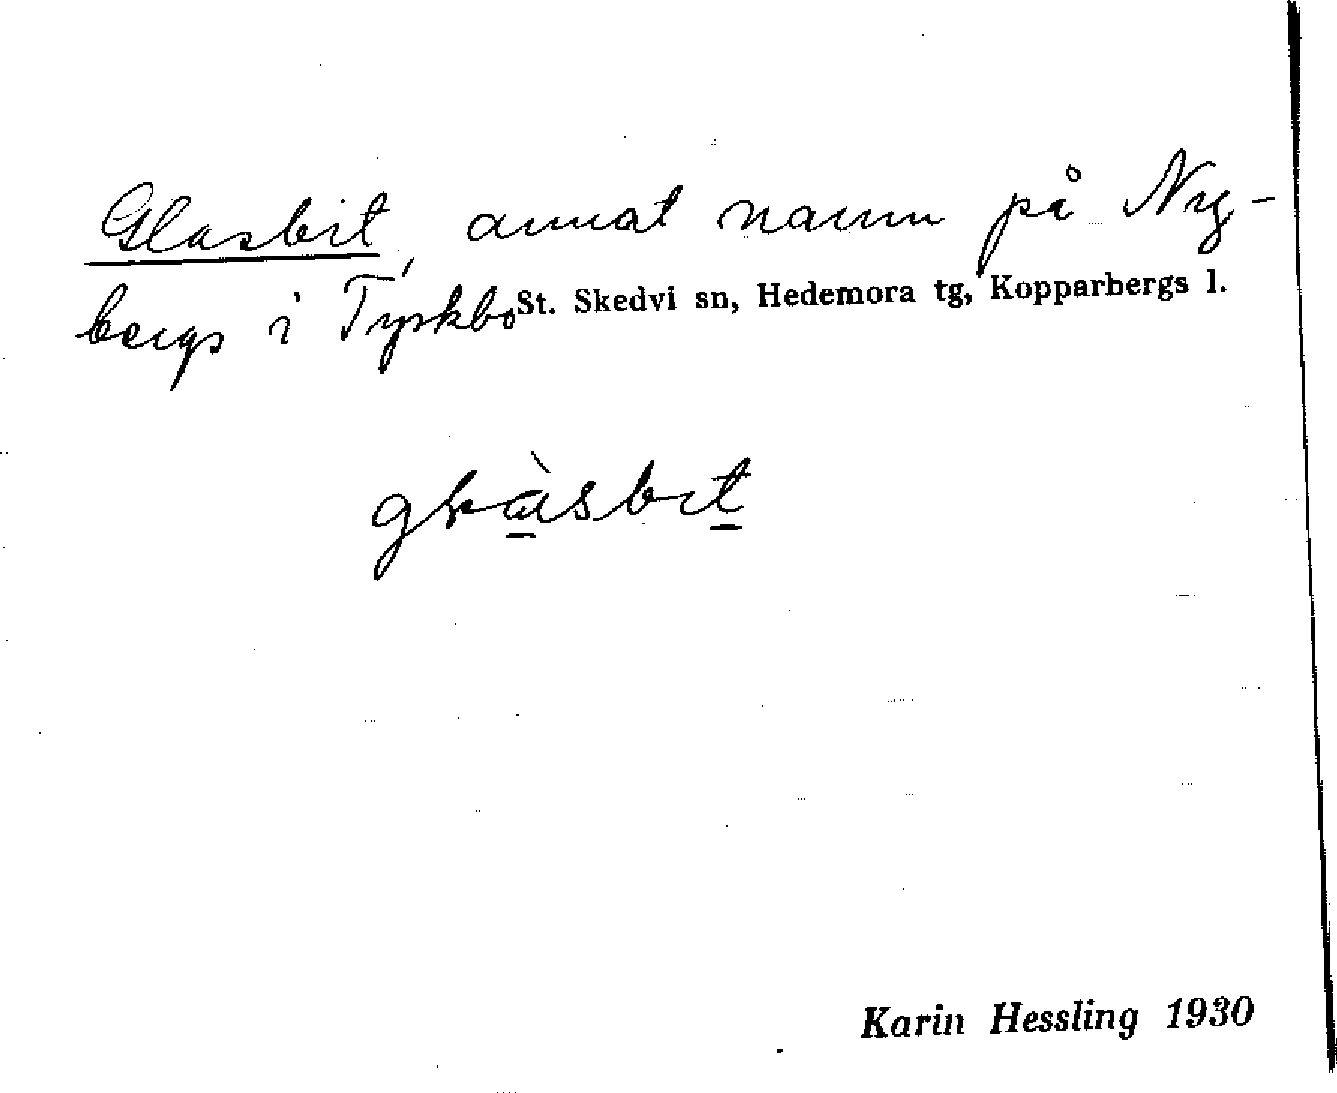 Glasbit, annat namn på Ny-
bergs i Tyskbo St. Skedvi sn, Hedemora tg, Kopparbergs l.
glàsbit
Karin Hessling 1930